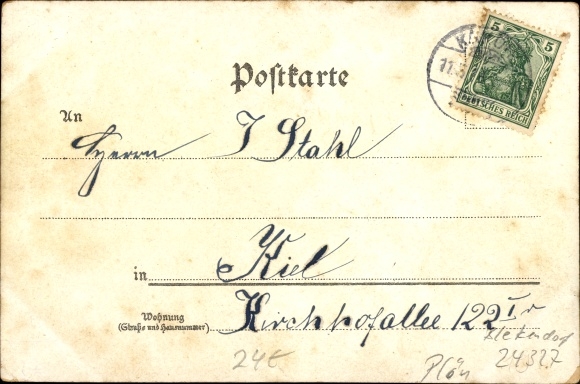 5 5
DEUTSCHES REICH
Postkarte
An
Herrn J Stahl
in Kiel
Wohnung
(Straße und Hausnummer)
Kirchhofallee 122 I r
24327
24t
Plön